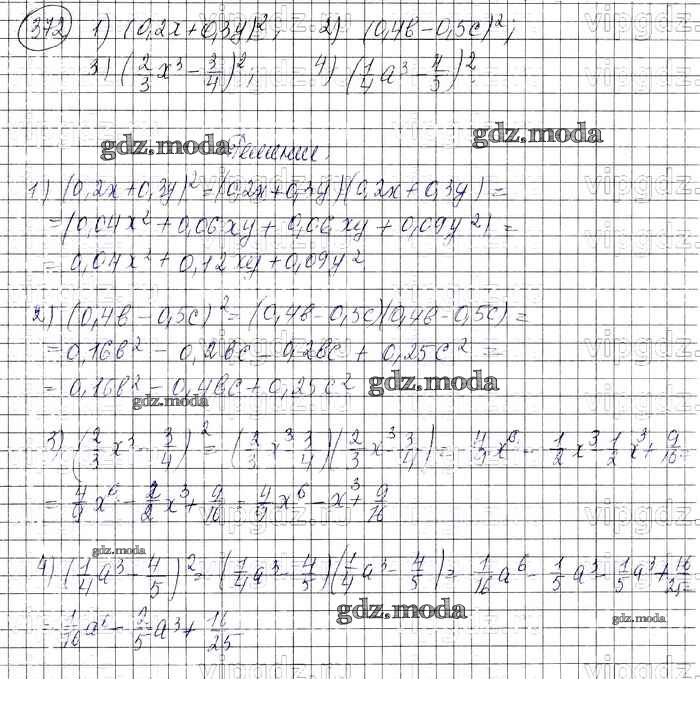 372 1) (0,2x + 0,3y)²; 2) (0,4b − 0,5c)²;
3) (2/3 x³ − 3/4)²; 4) (1/4 a³ − 4/5)²
gdz.moda gdz.moda
Решение.
1) (0,2x + 0,3y)² = (0,2x + 0,3y)(0,2x + 0,3y) =
= (0,04x² + 0,06xy + 0,06xy + 0,09y²) =
= 0,04x² + 0,12xy + 0,09y²
2) (0,4b − 0,5c)² = (0,4b − 0,5c)(0,4b − 0,5c) =
= 0,16b² − 0,2bc − 0,2bc + 0,25c² =
= 0,16b² − 0,4bc + 0,25c² gdz.moda
gdz.moda
3) (2/3 x³ − 3/4)² = (2/3 x³ − 3/4)(2/3 x³ − 3/4) = 4/9 x⁶ − 1/2 x³ − 1/2 x³ + 9/16
= 4/9 x⁶ − 2/2 x³ + 9/16 = 4/9 x⁶ − x³ + 9/16
gdz.moda
4) (1/4 a³ − 4/5)² = (1/4 a³ − 4/5)(1/4 a³ − 4/5) = 1/16 a⁶ − 1/5 a³ − 1/5 a³ + 16/25 =
= 1/16 a⁶ − 2/5 a³ + 16/25
gdz.moda gdz.moda